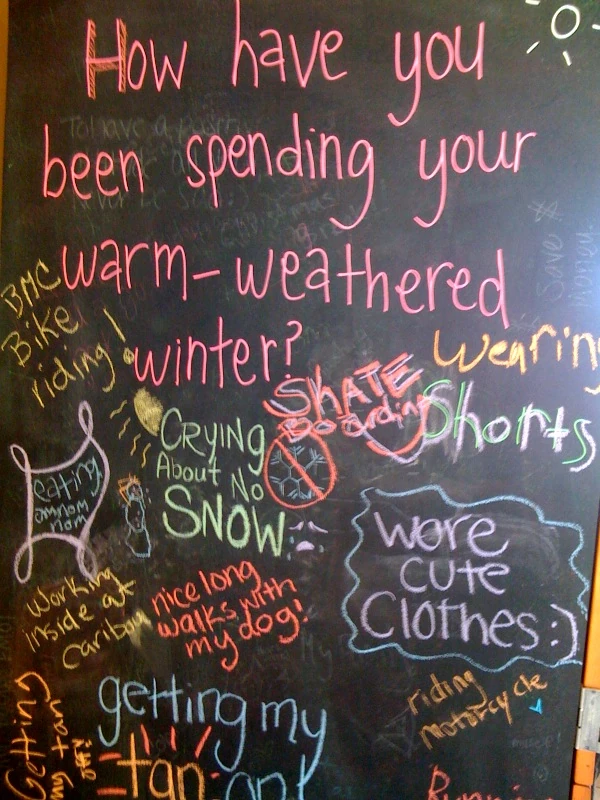 How have you
been spending your
warm-weathered
winter?
BMC
Bike
riding!
wearing
Shorts
SKATE
Boarding
CRYING
About No
SNOW
eating
omnom
nom
wore
cute
Clothes:)
working
inside at
caribou
nice long
walks with
my dog!
getting my
tan on!
riding
motorcycle
Getting
my tan
off!
Running